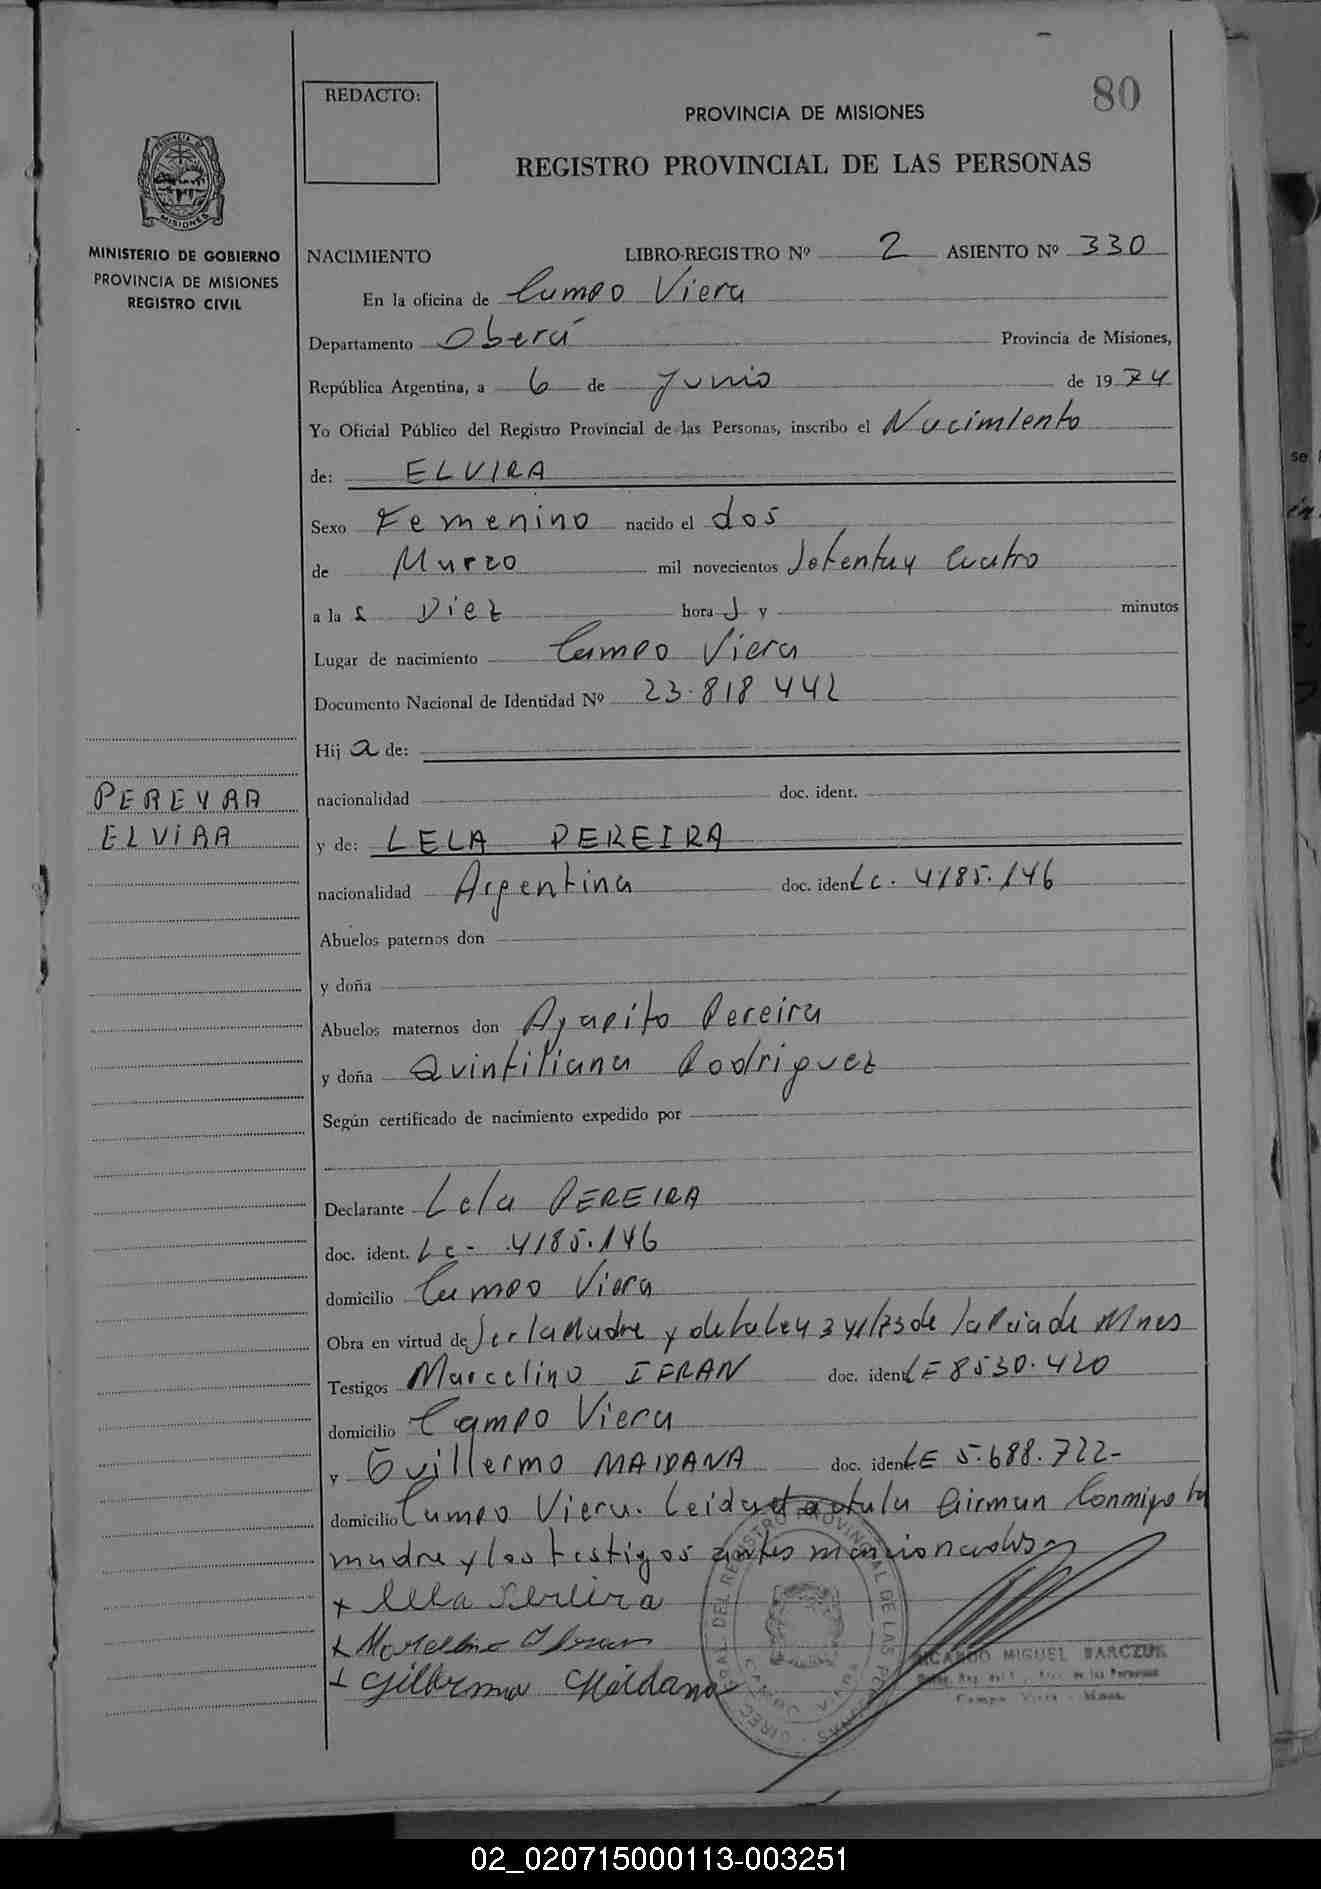 80
REDACTO:
PROVINCIA DE MISIONES
REGISTRO PROVINCIAL DE LAS PERSONAS
MISIONES
MINISTERIO DE GOBIERNO
PROVINCIA DE MISIONES
REGISTRO CIVIL
NACIMIENTO LIBRO-REGISTRO Nº 2 ASIENTO Nº 330
En la oficina de Campo Viera
Departamento Oberá Provincia de Misiones,
República Argentina, a 6 de Junio de 1974
Yo Oficial Público del Registro Provincial de las Personas, inscribo el Nacimiento
de: ELVIRA
Sexo Femenino nacido el dos
de Marzo mil novecientos Setenta y Cuatro
a las Diez horas y minutos
Lugar de nacimiento Campo Viera
Documento Nacional de Identidad Nº 23.818 442
Hija de:
nacionalidad doc. ident.
PEREYRA
ELVIRA
y de: LELA PEREIRA
nacionalidad Argentina doc. ident LC. 4185.146
Abuelos paternos don
y doña
Abuelos maternos don Agapito Pereira
y doña Quintiliana Rodriguez
Según certificado de nacimiento expedido por
Declarante Lela PEREIRA
doc. ident. LC- 4185.146
domicilio Campo Viera
Obra en virtud de Ser la Madre y de la Ley de la Pcia de Mnes
Testigos Marcelino IFRAN doc. ident LE 8530.420
domicilio Campo Viera
y Guillermo MAIDANA doc. ident. LE 5.688.722-
domicilio Campo Viera. Leida el acta la firman Conmigo la
madre y los testigos antes mencionados
x Lela Pereira
x Marcelino Ifran
x Gillermo Maidana
RICARDO MIGUEL BARCZUK
Campo Viera - Mnes.
02_020715000113-003251